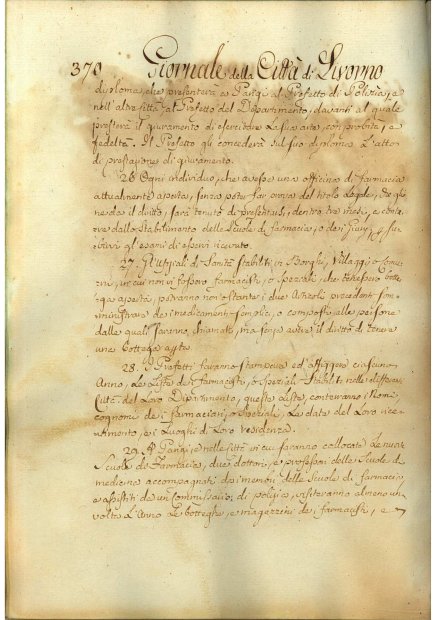 370 Giornale della Città di Livorno
diploma, che presenterà a Parigi al Prefetto di Polizia, e
nell'altre Città al Prefetto del Dipartimento, davanti al quale
presterà il giuramento di esercitare la sua arte con probità, e
fedeltà. Il Prefetto gli concederà sul suo diploma l'atto
di prestazione di giuramento.
26. Ogni individuo, che avesse una officina di farmacia
attualmente aperta, senza poter far prova del titolo Legale, che gli
ne da il diritto, sarà tenuto di presentarsi, dentro tre mesi, a contare
dallo Stabilimento delle Scuole di farmacia, o dei Giury, per
subirvi gli esami di esservi ricevuto.
27. Gl'Ufiziali di Sanità Stabiliti in Borghi, Villaggi, o
in cui non vi fossero farmacisti, o Speziali, che tenessero botte-
ga aperta, potranno non ostante i due Articoli precedenti som-
ministrare dei medicamenti semplici, o composti alle persone
dalle quali saranno chiamati, ma senza avere il diritto di tenere
una bottega aperta.
28. I Prefetti faranno stampare ed affiggere ciascun
Anno, le Liste dei Farmacisti, o Speziali Stabiliti nelle differenti
Città del Loro Dipartimento, queste Liste, conterranno i Nomi,
cognomi dei farmacisti, o Speziali, Le date del Loro rice-
vimento, e i Luoghi di Loro residenza.
29. A Parigi, e nelle Città in cui saranno collocate Le nuove
Scuole di Farmacia, due dottori, e professori delle Scuole di
medicina accompagnati dai membri delle Scuole di farmacia,
e assistiti da un Commissario di polizia, visiteranno almeno una
volta l'Anno Le botteghe, e magazzini dei farmacisti, e